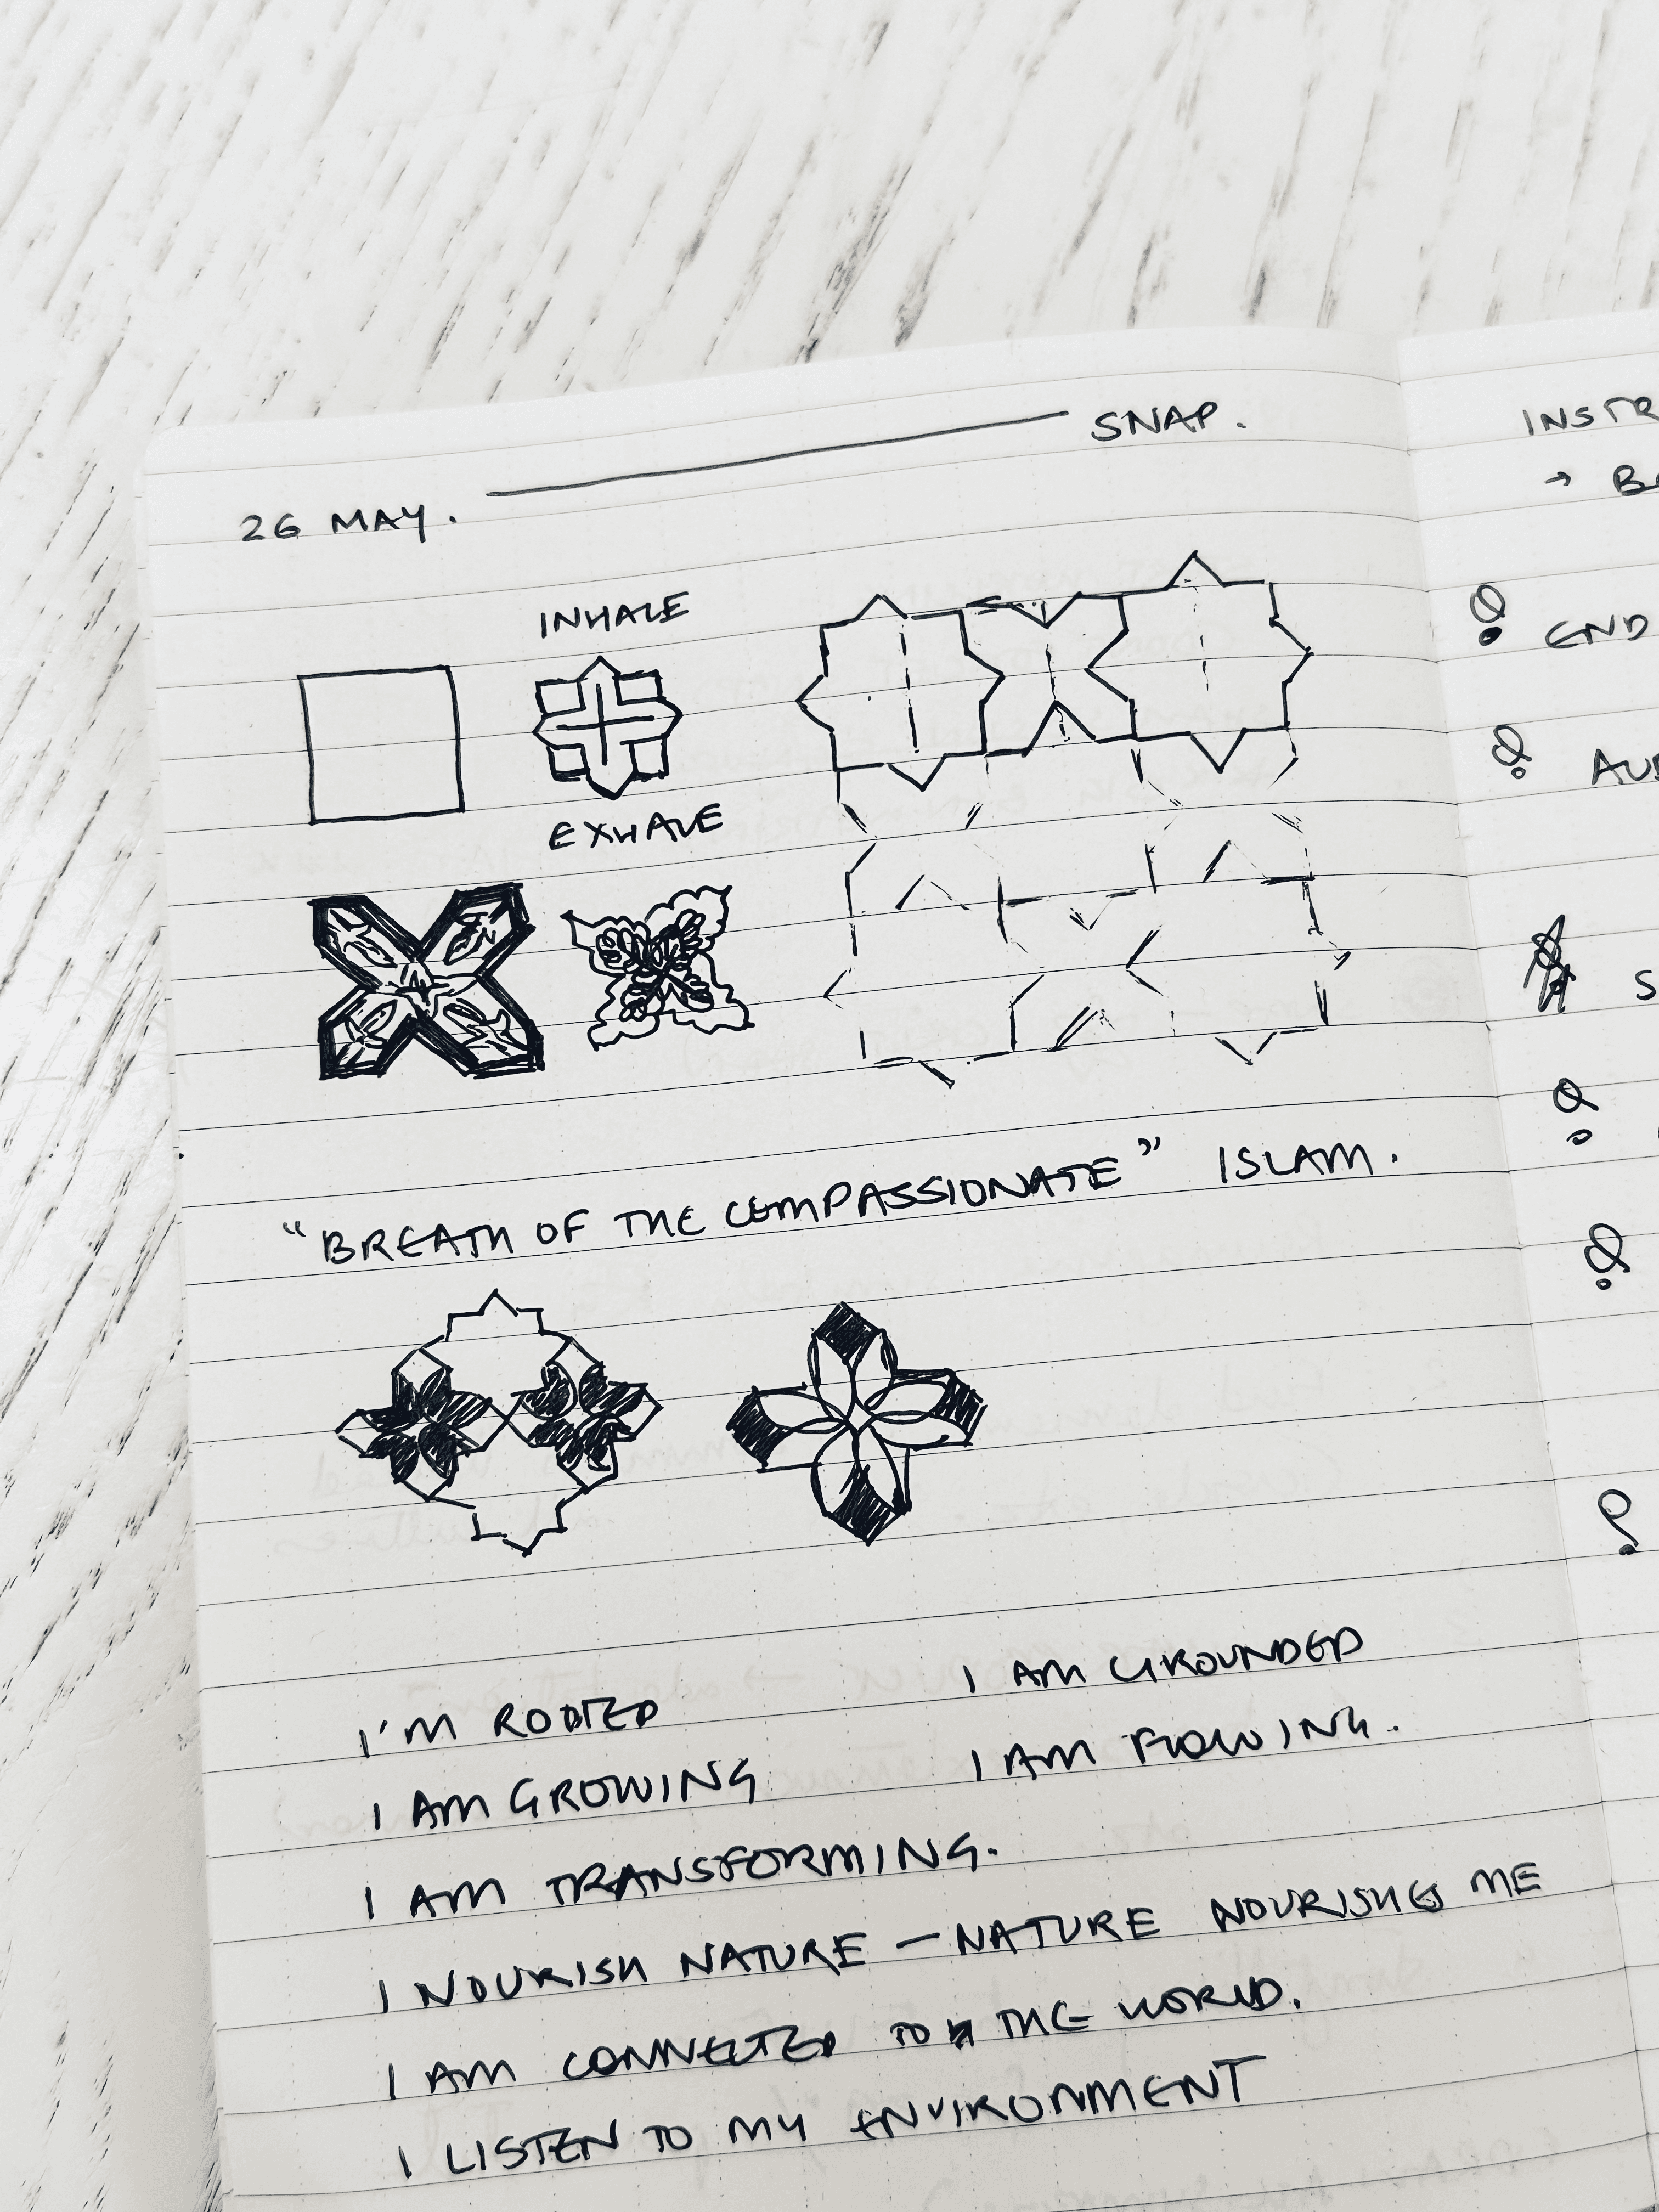 SNAP.
26 MAY.
INHALE
EXHALE
"BREATH OF THE COMPASSIONATE" ISLAM.
I'M ROOTED
I AM GROUNDED
I AM GROWING
I AM FLOWING.
I AM TRANSFORMING.
I NOURISH NATURE — NATURE NOURISHES ME
I AM CONNECTED TO THE WORLD.
I LISTEN TO MY ENVIRONMENT
INSTR
→ B
END
AU
S